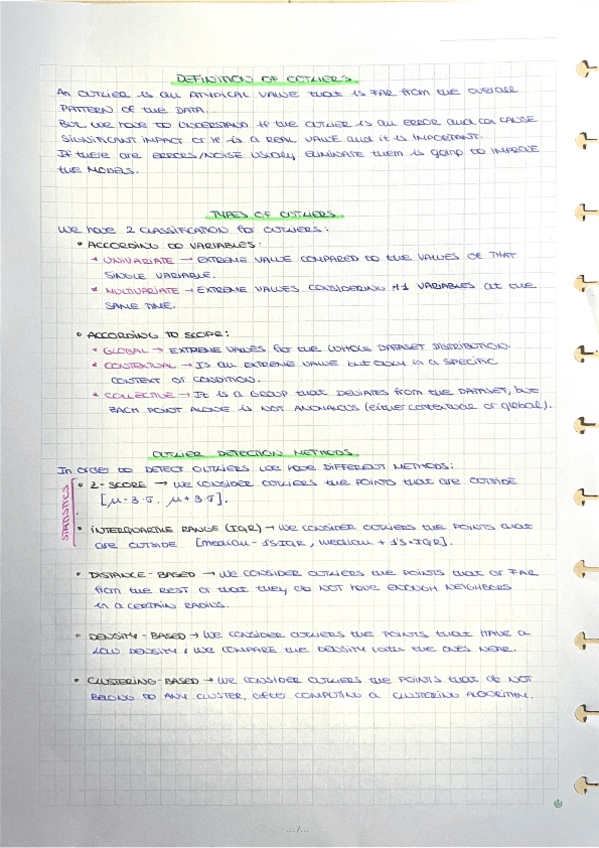 DEFINITION OF OUTLIERS
An OUTLIER is an ATYPICAL VALUE that is FAR from the overall
PATTERN OF the DATA.
But we have to UNDERSTAND if the OUTLIER is an ERROR and can CAUSE
SIGNIFICANT IMPACT or if is a REAL VALUE and it is IMPORTANT.
If there are ERRORS/NOISE USUALLY ELIMINATE them is going to IMPROVE
the MODELS.
TYPES OF OUTLIERS
We have 2 CLASSIFICATION for OUTLIERS:
• ACCORDING TO VARIABLES:
* UNIVARIATE → EXTREME VALUE COMPARED TO the VALUES OF THAT
SINGLE VARIABLE.
* MULTIVARIATE → EXTREME VALUES CONSIDERING +1 VARIABLES at the
SAME TIME.
• ACCORDING TO SCOPE:
* GLOBAL → EXTREME VALUES for the WHOLE DATASET DISTRIBUTION.
* CONTEXTUAL → Is an EXTREME VALUE but only in a SPECIFIC
CONTEXT or CONDITION.
* COLLECTIVE → It is a GROUP that DEVIATES from the DATASET, but
EACH POINT ALONE is NOT ANOMALOUS (either contextual or global).
OUTLIER DETECTION METHODS
In order to DETECT OUTLIERS we have DIFFERENT METHODS:
STATISTICS
• Z-SCORE → WE CONSIDER OUTLIERS the POINTS that are OUTSIDE
[μ-3·σ, μ+3·σ].
• INTERQUARTILE RANGE (IQR) → WE CONSIDER OUTLIERS the POINTS that
are OUTSIDE [median - 1'5·IQR, median + 1'5·IQR].
• DISTANCE-BASED → WE CONSIDER OUTLIERS the POINTS that are FAR
from the REST or that they do NOT HAVE ENOUGH NEIGHBORS
in a CERTAIN RADIUS.
• DENSITY-BASED → WE CONSIDER OUTLIERS the POINTS that HAVE a
LOW DENSITY, WE COMPARE the DENSITY with the ONES NEAR.
• CLUSTERING-BASED → WE CONSIDER OUTLIERS the POINTS that do NOT
BELONG TO ANY CLUSTER, after COMPUTING a CLUSTERING ALGORITHM.
.../...